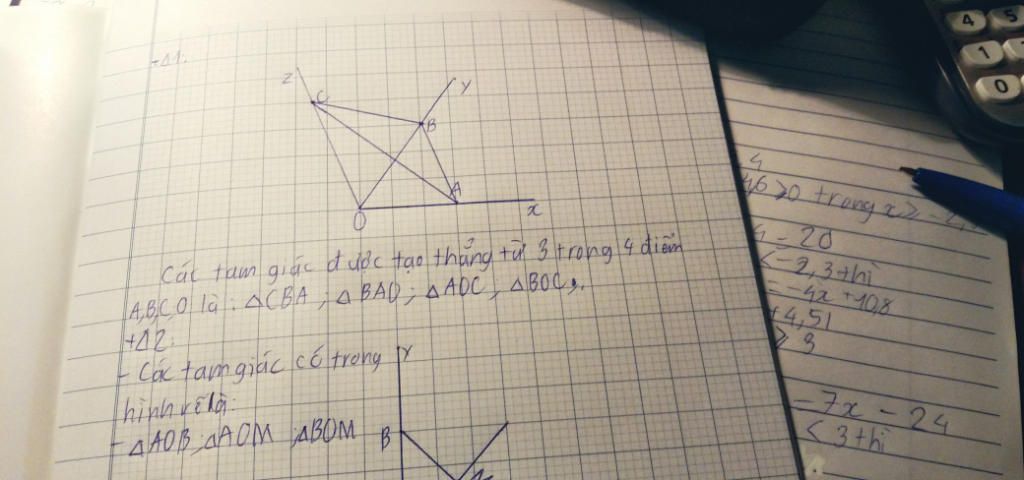 +Δ1.
Z
C
Y
B
A
O
x
Các tam giác được tạo thẳng từ 3 trong 4 điểm
A,B,C,O là: ΔCBA; ΔBAO; ΔAOC, ΔBOC,.
+Δ2.
- Các tam giác có trong
hình vẽ là:
- ΔAOB; ΔAOM; ΔBOM
Y
B
4
>0 trong x ≥
= 20
< -2,3 thì
= -4x + 10,8
+ 4,51
≥ 3
= 7x - 24
< 3 thì
4 5
1
0